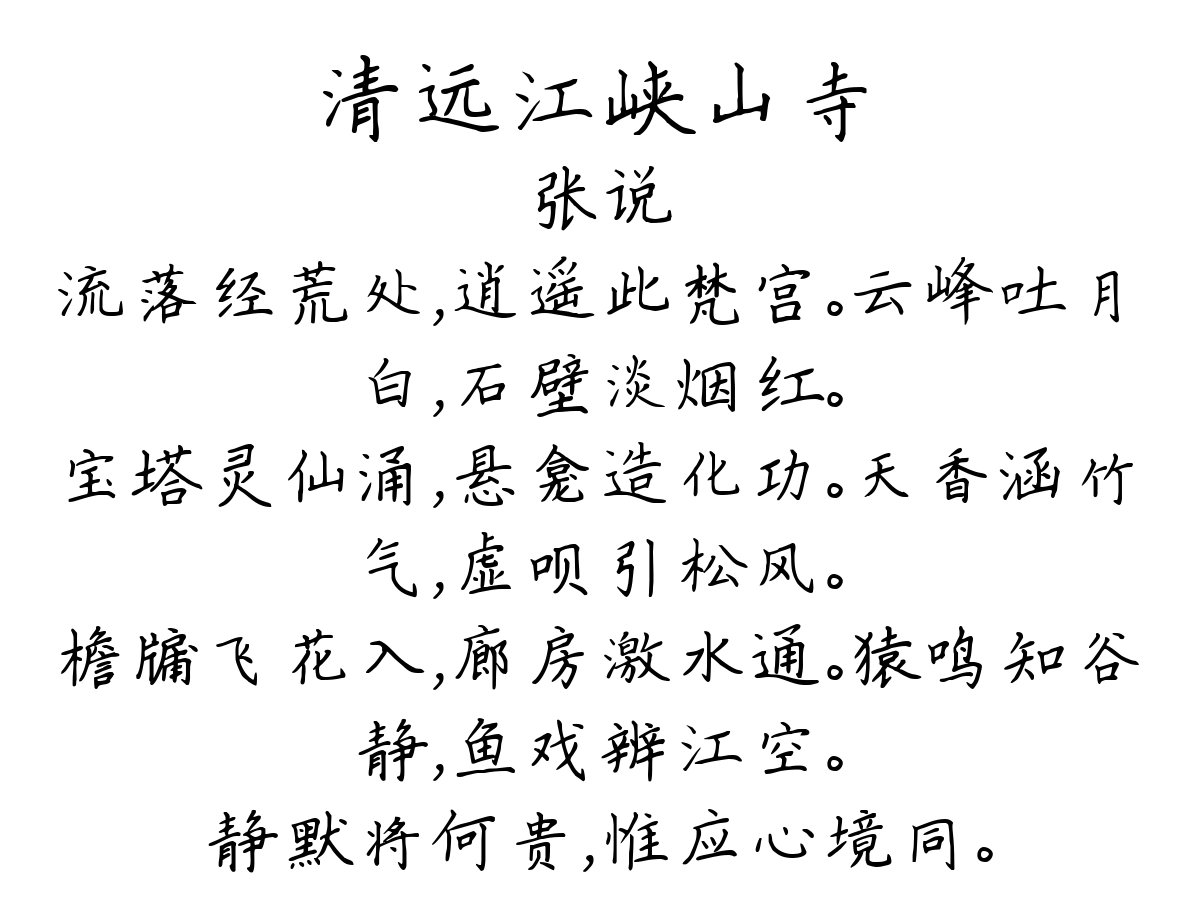 清远江峡山寺
张说
流落经荒处,逍遥此梵宫。云峰吐月
白,石壁淡烟红。
宝塔灵仙涌,悬龛造化功。天香涵竹
气,虚呗引松风。
檐牖飞花入,廊房激水通。猿鸣知谷
静,鱼戏辨江空。
静默将何贵,惟应心境同。